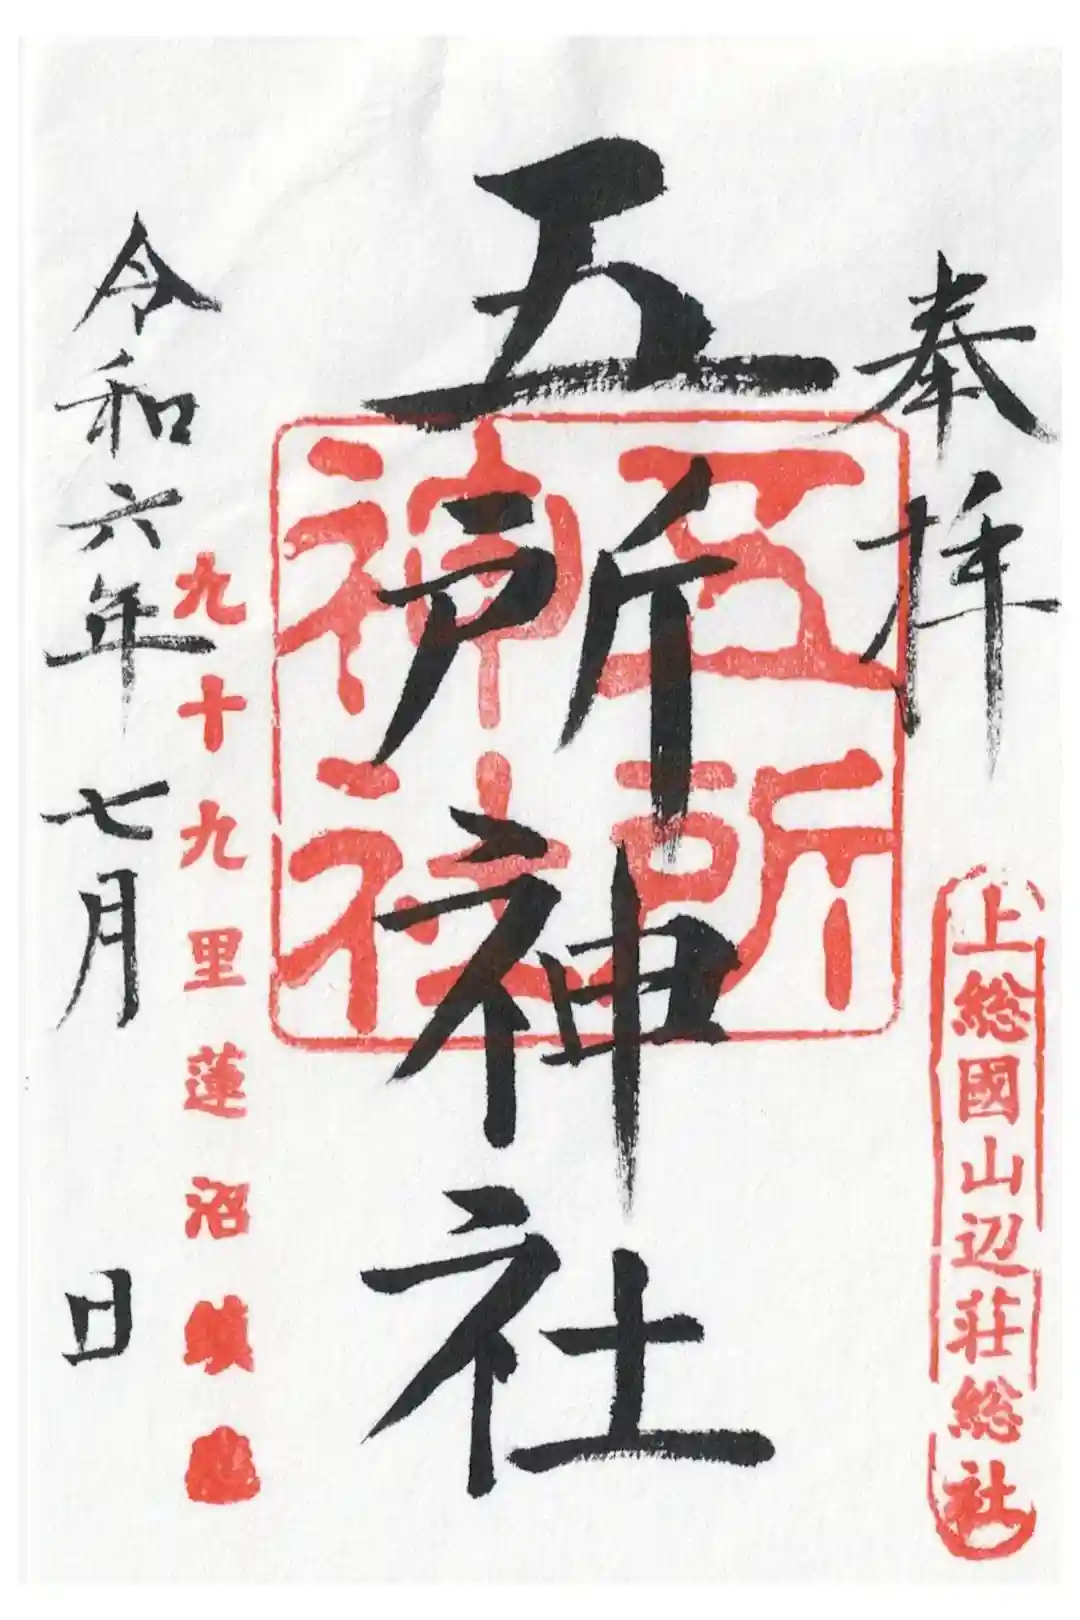 奉拝
上総國山辺荘総社
五所神社
五所神社
九十九里蓮沼鎮座
令和六年七月 日